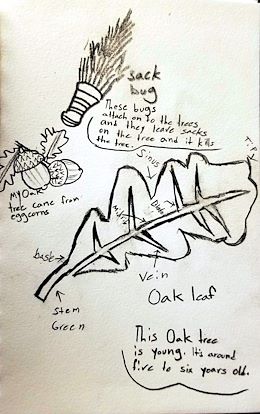 sack
bug
These bugs
attach on to the trees
and they leave sacks
on the tree and it kills
the tree.
Sinus
Tip
My Oak
tree came from
eggcorns
Midrib
base
Vein
stem
Green
Oak leaf
This Oak tree
is young. It's around
five to six years old.